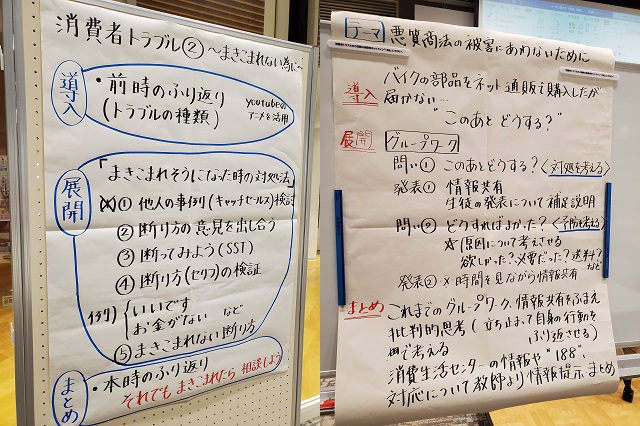 消費者トラブル② ～まきこまれない為に～
導入
・前時のふり返り
(トラブルの種類)
youtubeの
アニメを活用
展開
「まきこまれそうになった時の対処法」
① 他人の事例(キャッチセールス)検討
② 断り方の意見を出し合う
③ 断ってみよう(SST)
④ 断り方(セリフ)の検証
例) いいです
お金がない など
⑤ まきこまれない断り方
まとめ
・本時のふり返り
それでも まきこまれたら 相談しよう
テーマ 悪質商法の被害にあわないために
導入
バイクの部品をネット通販で購入したが
届かない…
"このあと どうする?"
展開
グループワーク
問い① このあとどうする? <対処を考える>
発表① 情報共有
生徒の発表について補足説明
問い② どうすればよかった? <予防を考える>
☆(原因について考えさせる
欲しかった?必要だった?送料?
など
発表② × 時間を見ながら情報共有
まとめ
これまでのグループワーク、情報共有をふまえ
批判的思考(立ち止まって自身の行動を
ふり返させる)
で考える
消費生活センターの情報や"188",
対応について教師より情報提示、まとめ